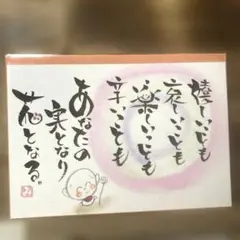 嬉しいことも
哀しいことも
楽しいことも
辛いことも
あなたの
実となり
花となる。
み